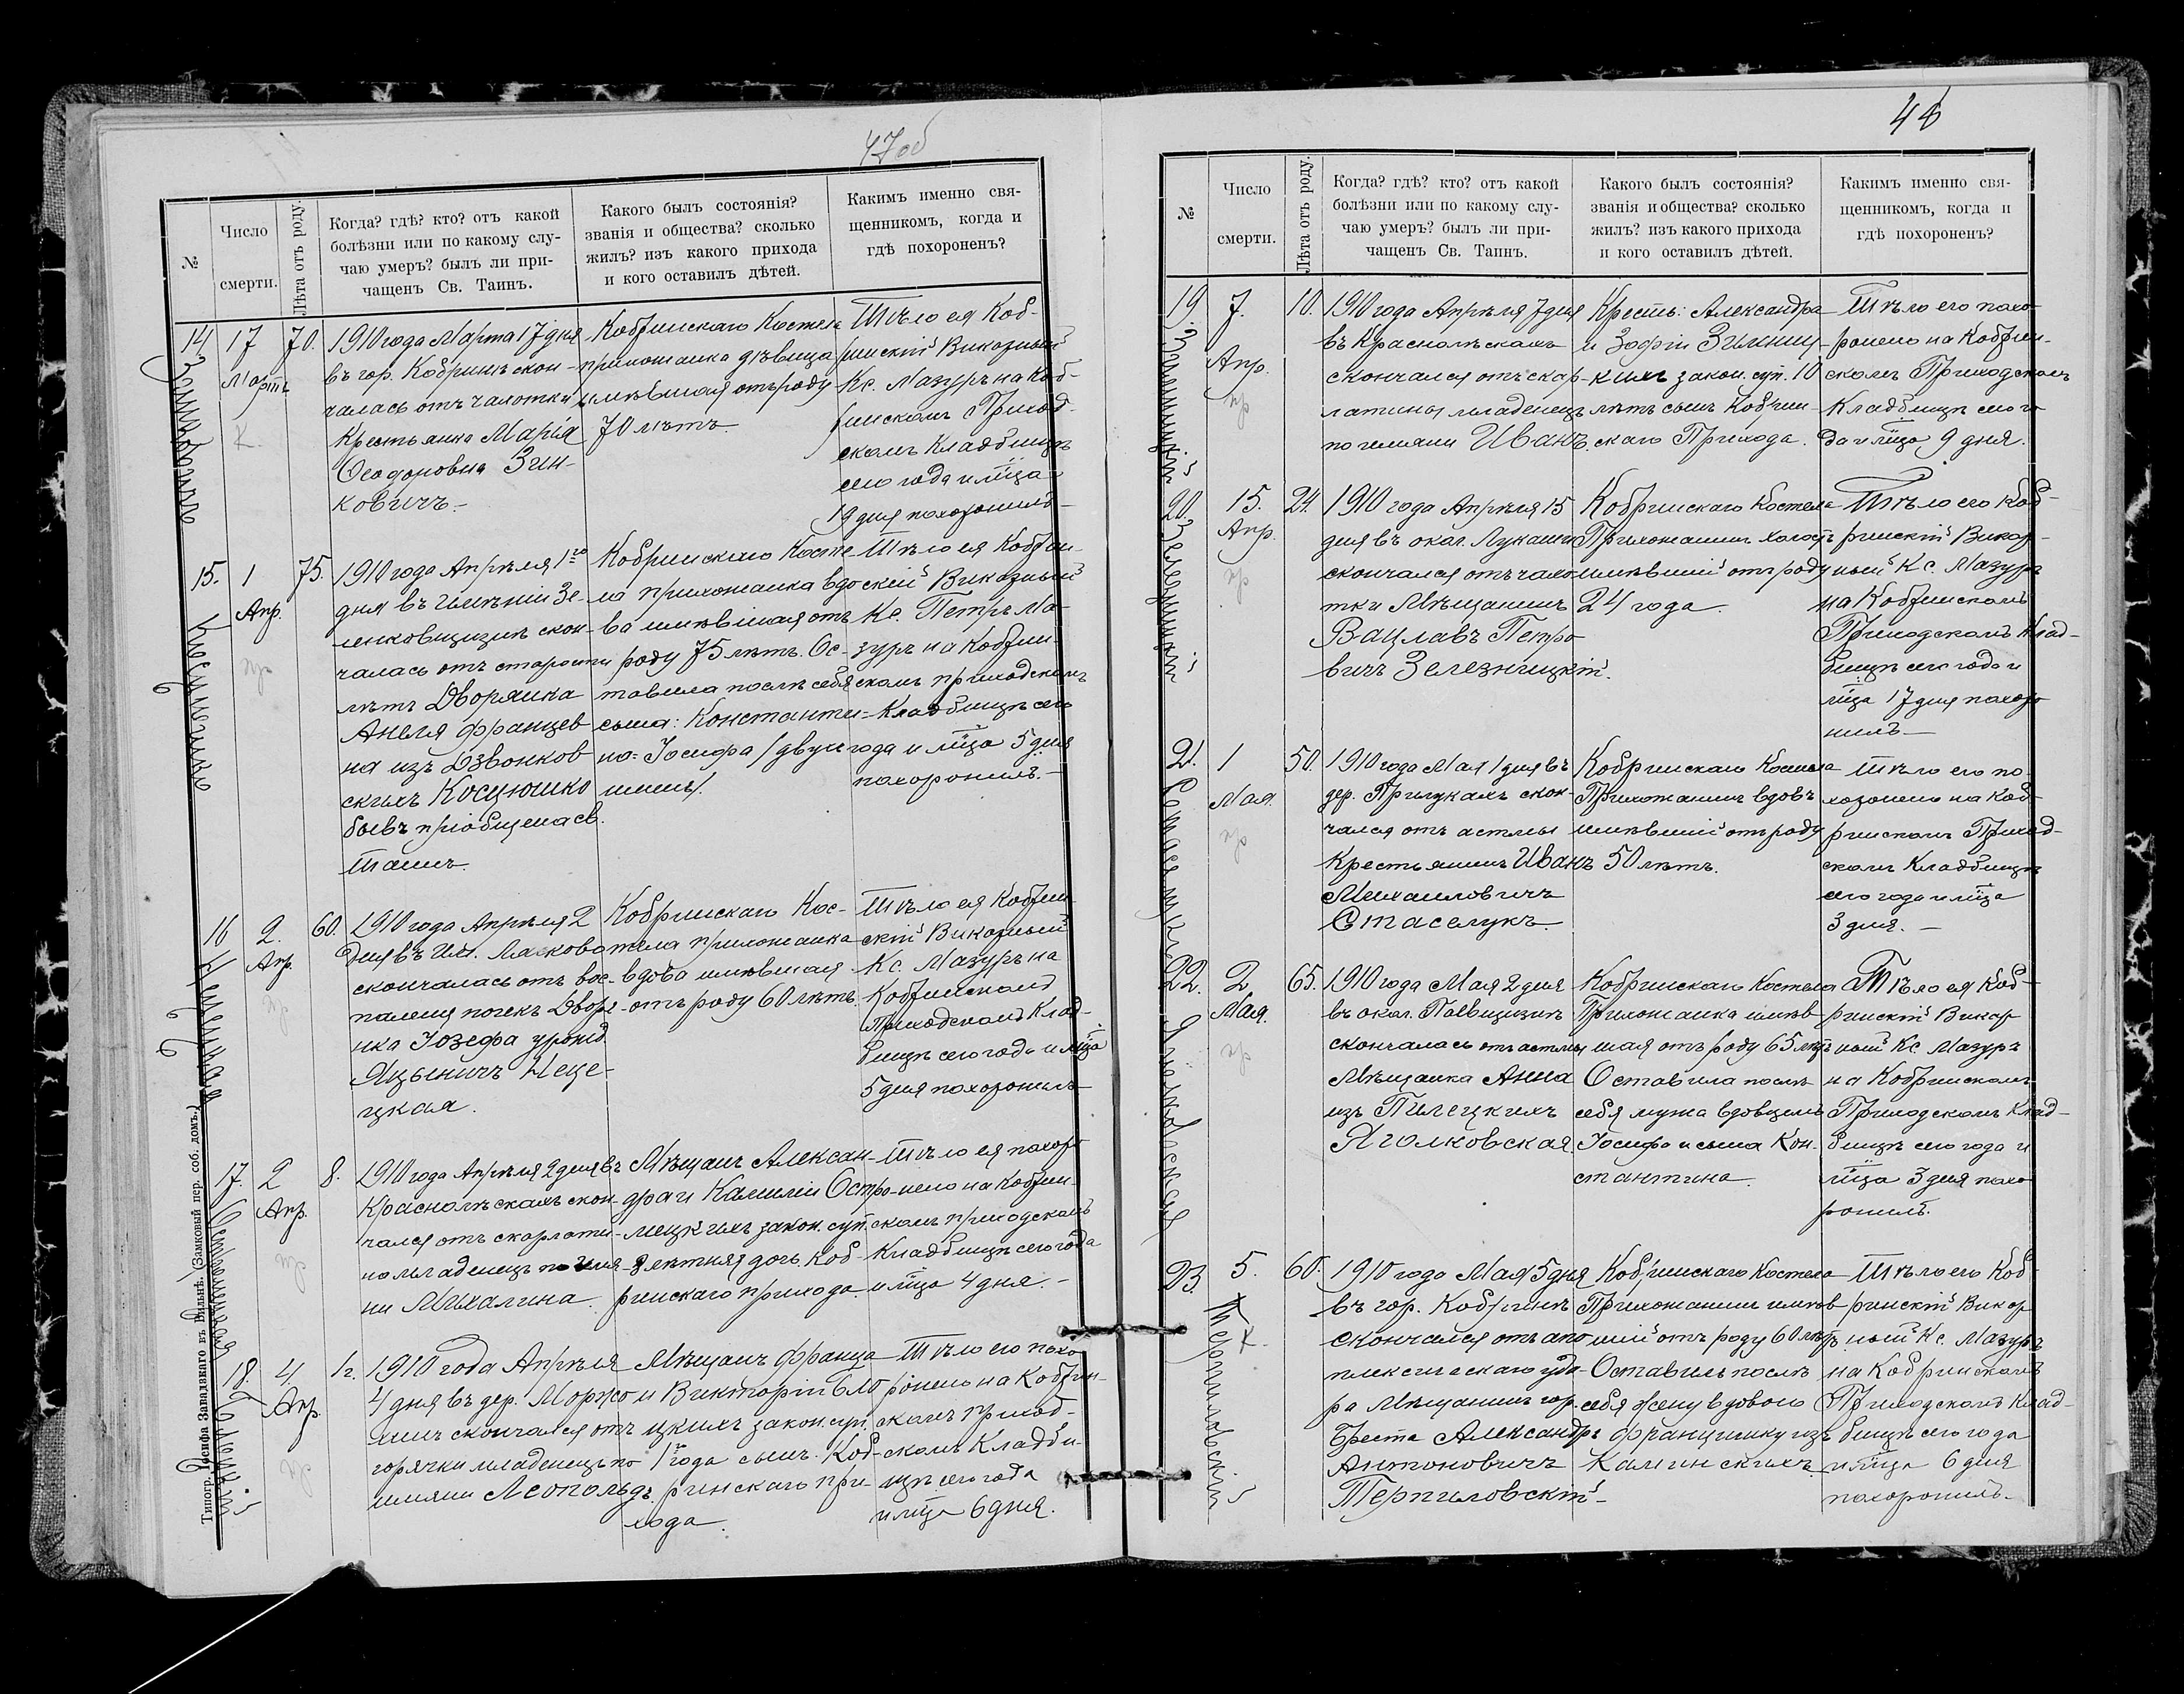 47об
№
Число
смерти.
Лѣта отъ роду.
Когда? гдѣ? кто? отъ какой
болѣзни или по какому слу-
чаю умеръ? былъ ли при-
чащенъ Св. Таинъ.
Какого былъ состоянія?
званія и общества? сколько
жилъ? изъ какого прихода
и кого оставилъ дѣтей.
Какимъ именно свя-
щенникомъ, когда и
гдѣ похороненъ?
14
Зинковичъ
17
Мартъ
К.
70.
1910 года Марта 17 дня
въ гор. Кобринѣ скон-
чалась отъ чахотки
Крестьянка Марья
Ѳеодоровна Зин-
ковичъ.-
Кобринскаго Костела
прихожанка дѣвица
имѣвшая отъ роду
70 лѣтъ.
Тѣло ея Коб-
ринскій Викарный
Кс. Мазуръ на Коб-
ринскомъ Приход-
скомъ Кладбищѣ
сего года и м̃ца
19 дня похоронилъ-
15.
Косцюшко
1
Апр.
пр
75.
1910 года Апрѣля 1го
дня въ имѣніи Зе-
ленковщизнѣ скон-
чалась отъ старости
лѣтъ Дворянка
Анеля Францев-
на изъ Дзвонков
скихъ Косцюшко
бывъ пріобщена св.
Таинъ.
Кобринскаго Косте-
ла прихожанка вдо-
ва имѣвшая отъ
роду 75 лѣтъ. Ос-
тавила послѣ себя
сына: Константи-
на-Іосифа /двуи
менны/.
Тѣло ея Кобрин-
скій Викарный
Кс. Петръ Ма-
зуръ на Кобрин-
скомъ приходскомъ
Кладбищѣ сего
года и м̃ца 5 дня
похоронилъ.-
16
Нецецкая
2.
Апр.
пр
60.
1910 года Апрѣля 2
дня въ им. Лясково
скончалась отъ вос-
паленія почекъ Дворя-
нка Юзефа урожд.
Яцыничъ Неце-
цкая.
Кобринскаго Кос-
тела прихожанка
вдова имѣвшая
отъ роду 60 лѣтъ.
Тѣло ея Кобрин-
скій Викарный
Кс. Мазуръ на
Кобринскомъ
Приходскомъ Клад-
бищѣ сего года и м̃ца
5 дня похоронилъ
17.
2
Апр.
пр
8.
1910 года Апрѣля 2 дня въ
Краснолѣскахъ скон-
чался отъ скарлати-
ны младенецъ по име-
ни Михалина.
Мѣщанъ Алексан-
дра и Камиліи Остро-
мецкихъ закон. суп.
8 лѣтняя дочь Коб-
ринскаго прихода.
Тѣло ея похоро-
нено на Кобрин-
скомъ приходскомъ
Кладбищѣ сего года
и м̃ца 4 дня.-
18.
4.
Апр.
пр
1г.
1910 года Апрѣля
4 дня въ дер.
скончался отъ
горячки младенецъ по
имени Леопольдъ.
Мѣщанъ Франца
и Викторіи
цкихъ закон. суп.
1го года сынъ. Коб-
ринскаго при-
хода.
Тѣло его похо
ронено на Кобрин-
скомъ приход-
скомъ Кладби-
щѣ сего года
и м̃ца 6 дня.
Типогр. Іосифа Завадзкаго въ Вильнѣ. (Замковый пер. соб. домъ.)
№
Число
смерти.
Лѣта отъ роду.
Когда? гдѣ? кто? отъ какой
болѣзни или по какому слу-
чаю умеръ? былъ ли при-
чащенъ Св. Таинъ.
Какого былъ состоянія?
званія и общества? сколько
жилъ? изъ какого прихода
и кого оставилъ дѣтей.
Какимъ именно свя-
щенникомъ, когда и
гдѣ похороненъ?
19.
7.
Апр.
пр
10.
1910 года Апрѣля 7 дня
въ Краснолѣскахъ
скончался отъ скар-
латины младенецъ
по имени Иванъ.
Кресть: Александра
и Зофіи Зѣлиниц-
кихъ закон. суп. 10
лѣтъ сынъ Кобрин-
скаго Прихода.
Тѣло его похо-
ронено на Кобрин-
скомъ Приходскомъ
Кладбищѣ сего го
да и м̃ца 9 дня.
20.
Зелезницкій
15.
Апр.
пр
24.
1910 года Апрѣля 15
дня въ окол. Лукаши
скончался отъ чахо
тки Мѣщанинъ
Вацлавъ Петро
вичъ Зелезницкій.
Кобринскаго Костела
Прихожанинъ холостъ
имѣвшій отъ роду
24 года.
Тѣло его Коб-
ринскій Викар-
ный Кс. Мазуръ
на Кобринскомъ
Приходскомъ Клад-
бищѣ сего года и
м̃ца 17 дня похоро
нилъ.-
21.
Стаселукъ
1
Мая
пр
50.
1910 года Мая 1 дня въ
дер. Прилукахъ скон-
чался отъ астмы
Крестьянинъ Иванъ
Михаиловичъ
Стаселукъ.
Кобринскаго Костела
Прихожанинъ вдовъ
имѣвшій отъ роду
50 лѣтъ.
Тѣло его по-
хоронено на Коб-
ринскомъ Приход-
скомъ Кладбищѣ
сего года и м̃ца
3 дня.-
22.
Яголковская
2
Мая.
пр
65.
1910 года Мая 2 дня
въ окол.
скончалась отъ астмы
Мѣщанка Анна
изъ Пилецкихъ
Яголковская.
Кобринскаго Костела
Прихожанка имѣв
шая отъ роду 65 лѣтъ
Оставила послѣ
себя мужа вдовцемъ
Іосифа и сына Кон-
стантина.
Тѣло ея Коб-
ринскій Викар
ный Кс. Мазуръ
на Кобринскомъ
Приходскомъ Клад-
бищѣ сего года и
м̃ца 3 дня похо
ронилъ.
23.
Терпиловскій
5.
К.
60.
1910 года Мая 5 дня
въ гор. Кобринѣ
скончался отъ апо
плексическаго уда-
ра Мѣщанинъ гор.
Бреста Александръ
Антоновичъ
Терпиловскій-
Кобринскаго Костела
Прихожанинъ имѣв
шій отъ роду 60 лѣтъ
Оставилъ послѣ
себя жену вдовою
Францишку изъ
Каминскихъ.
Тѣло его Коб-
ринскій Викар
ный Кс. Мазуръ
на Кобринскомъ
Приходскомъ Клад-
бищѣ сего года
и м̃ца 6 дня
похоронилъ.